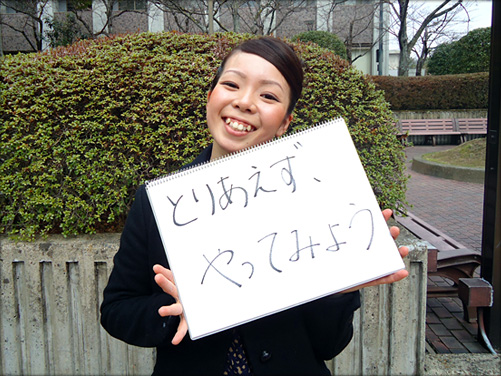 とりあえず、
やってみよう